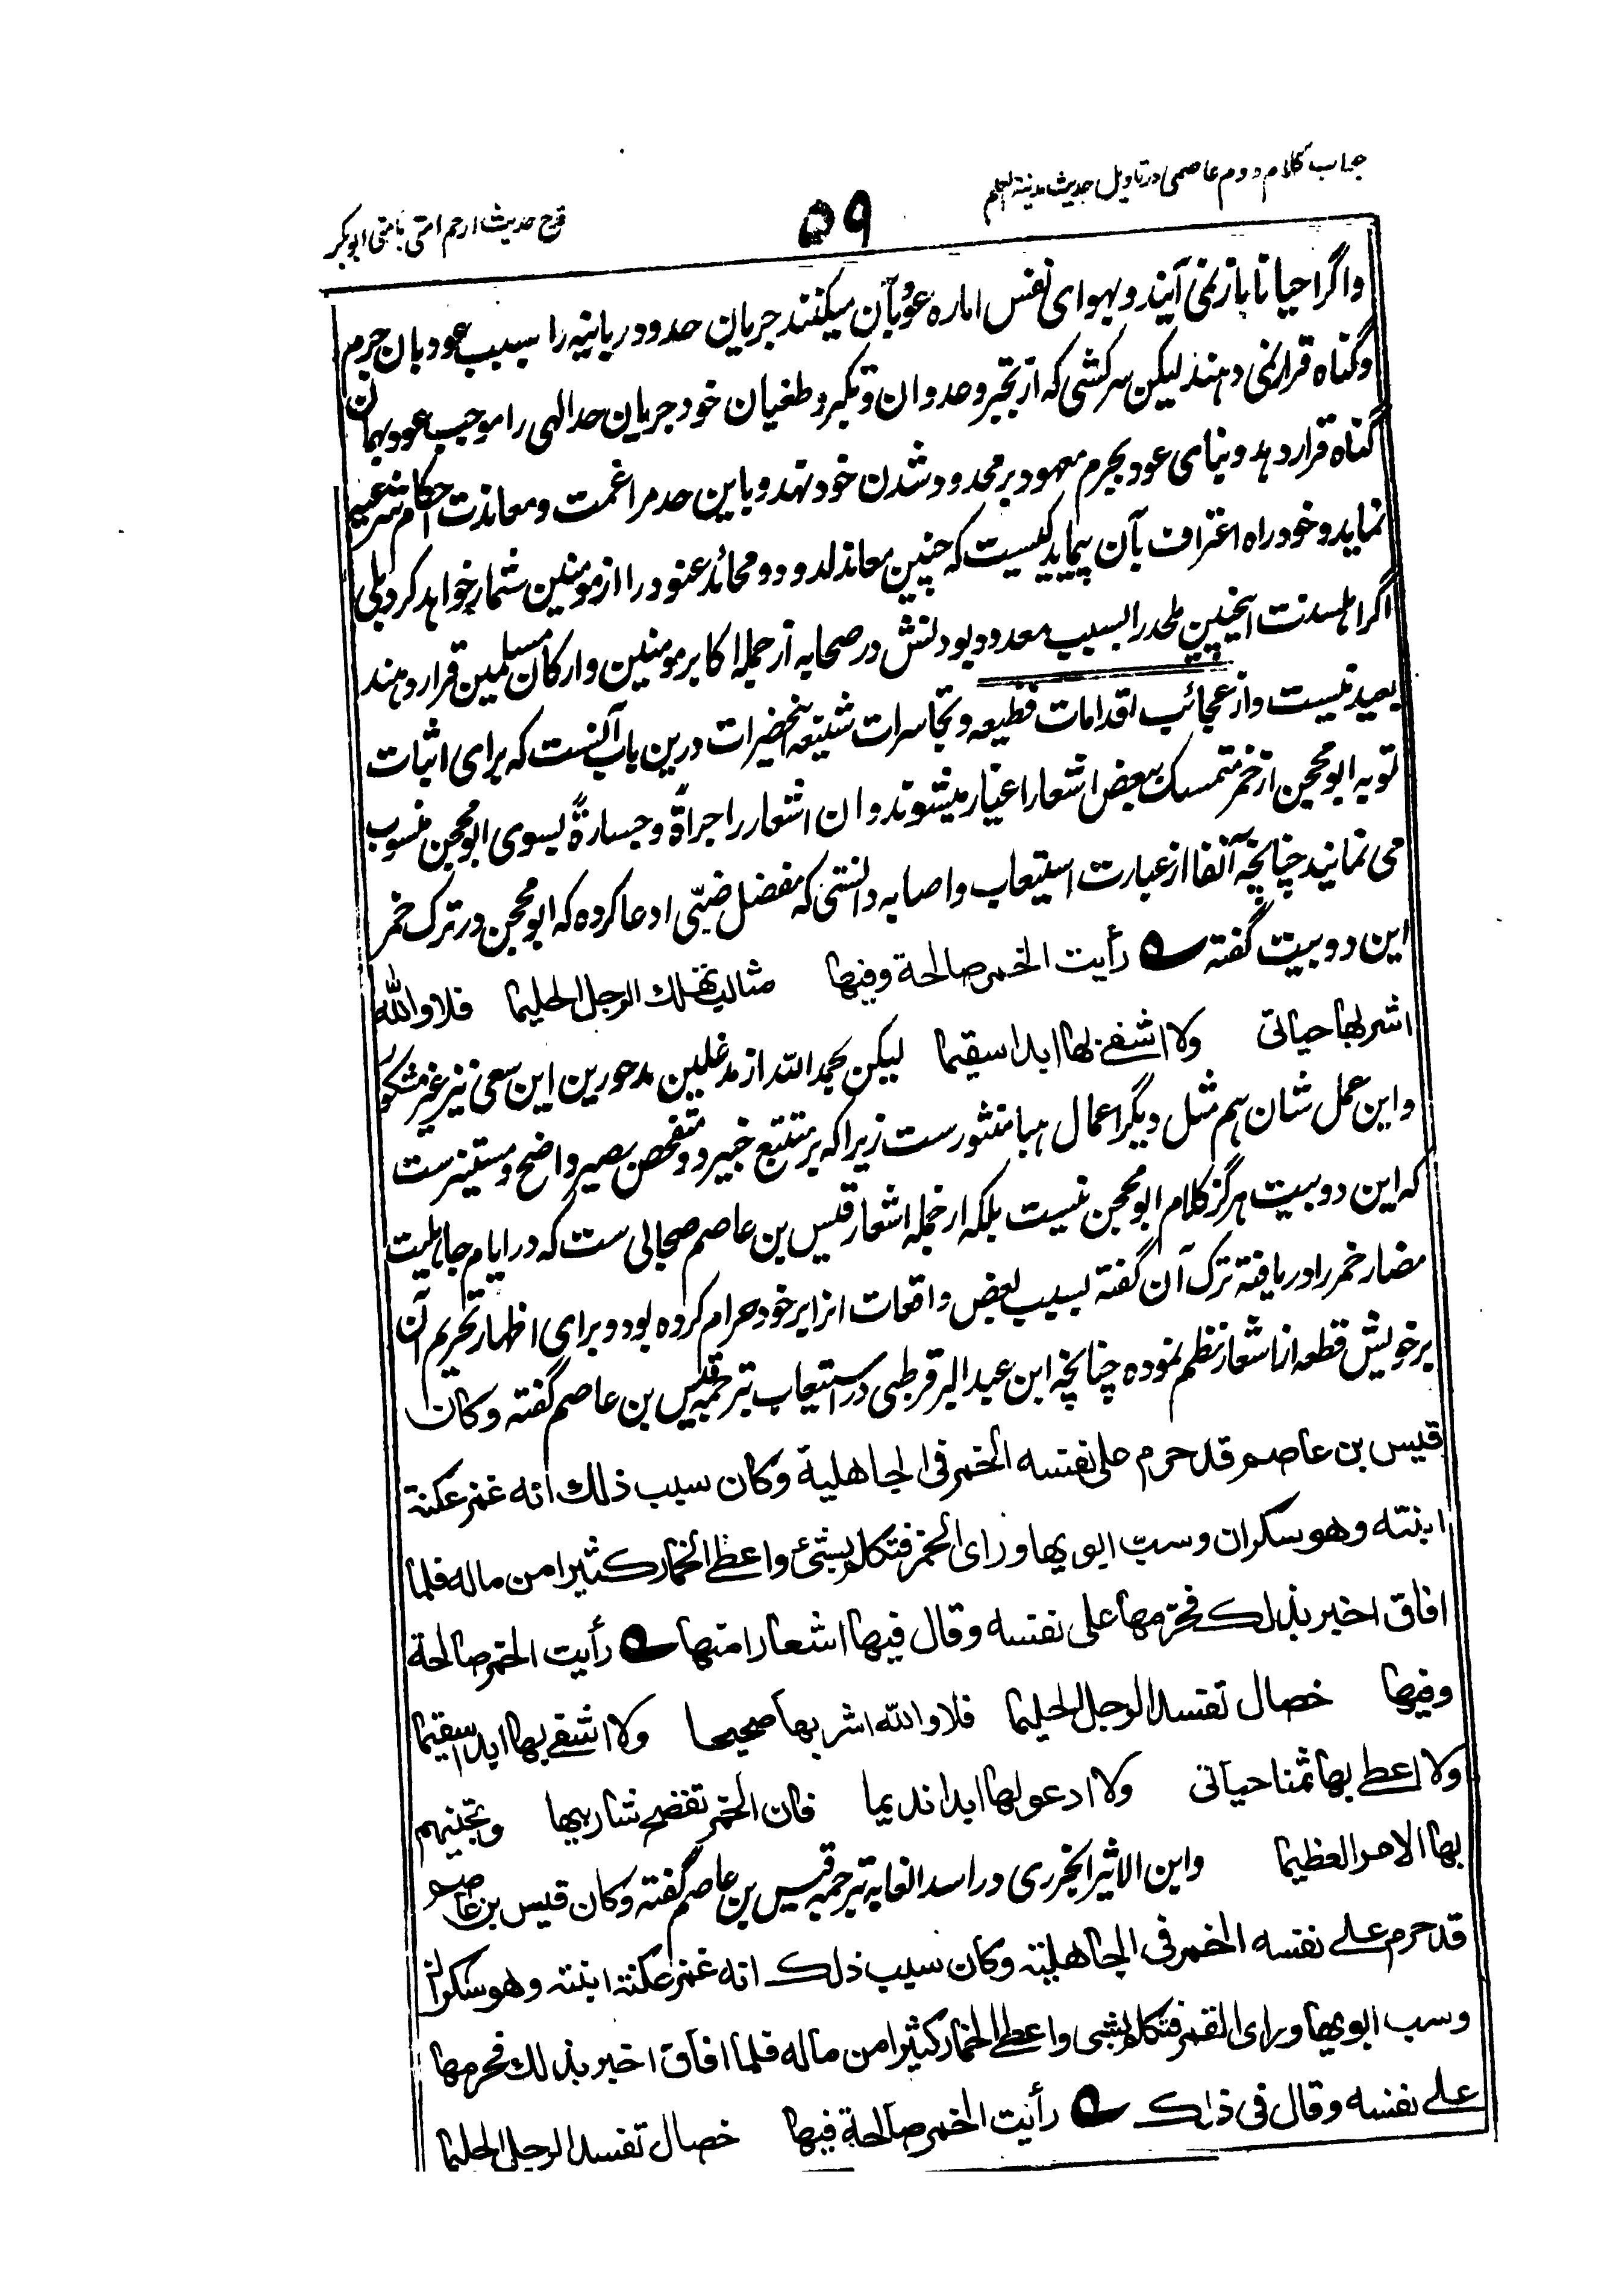 جواب کلام دوم عاصمی در تاویل حدیث مدینة العلم
۵۹
قدح حدیث ارحم امتی بامتی ابوبکر
واگر احیانا باز نمی آیند و بهوای نفس اماره عود بآن میکنند جریان حدود ربانیه را سبب عود بآن جرم
وگناه قرار نمی دهند لیکن سرکشی که از تجبر و عدوان و تکبر و طغیان خود جریان حد الهی را موجب عود بهمان
گناه قرار دهد و بنای عود بجرم معهود بر محدود شدن خود نهد و باین حد مراغمت و معاندت احکام شرعیه
نماید و خود راه اعتراف بآن پیماید کیست که چنین معاند لدود و محائد عنود را از مومنین شمار خواهد کرد بلی
اگر اهلسنت اینچنین ملحد را بسبب معدود بودنش در صحابه از جمله اکابر مومنین و ارکان مسلمین قرار دهند
بعید نیست و از عجائب اقدامات فظیعه و تجاسرات شنیعه اینحضرات درین باب آنست که برای اثبات
توبه ابو محجن از خمر متمسک ببعض اشعار اغیار میشوند و ان اشعار را جراةً و جسارةً بسوی ابو محجن منسوب
می نمایند چنانچه آنفا از عبارت استیعاب و اصابه دانستی که مفضل ضبّی ادعا کرده که ابو محجن در ترک خمر
این دو بیت گفته رأیت الخمر صالحة وفیها مثالب تهلک الرجل الحلیما فلا والله
اشربها حیاتی ولا اشفی بها ابدا سقیما لیکن بحمد الله از مدغلین مدحورین این سعی نیز غیر مشکور
واین عمل شان هم مثل دیگر اعمال هبا منثورست زیرا که بر متتبع خبیر و متفحص بصیر واضح و مستنیرست
که این دو بیت هرگز کلام ابو محجن نیست بلکه از جمله اشعار قیس بن عاصم صحابی ست که در ایام جاهلیت
مضار خمر را دریافته ترک آن گفته بسبب بعض واقعات انرا بر خود حرام کرده بود و برای اظهار تحریم آن
بر خویش قطعه از اشعار نظم نموده چنانچه ابن عبد البر قرطبی در استیعاب بترجمه قیس بن عاصم گفته وکان
قیس بن عاصم قد حرم علی نفسه الخمر فی الجاهلیة وکان سبب ذلک انه غمز عکنة
ابنته وهو سکران وسبّ ابویها ورای الخمر فتکلم بشئ واعطی الخمار کثیرا من ماله فلما
افاق اخبر بذلک فحرّمها علی نفسه وقال فیها اشعارا منها رأیت الخمر صالحة
وفیها خصال تفسد الرجل الحلیما فلا والله اشربها صحیحا ولا اشفی بها ابدا سقیما
ولا اعطی بها ثمنا حیاتی ولا ادعو لها ابدا ندیما فان الخمر تفضح شاربیها وتجنیهم
بها الامر العظیما وابن الاثیر الجزری در اسد الغابه بترجمه قیس بن عاصم گفته وکان قیس بن عاصم
قد حرم علی نفسه الخمر فی الجاهلیة وکان سبب ذلک انه غمز عکنة ابنته وهو سکران
وسب ابویها ورای القمر فتکلم بشی واعطی الخمار کثیرا من ماله فلما افاق اخبر بذلک فحرمها
علی نفسه وقال فی ذلک رأیت الخمر صالحة فیها خصال تفسد الرجل الحلیما